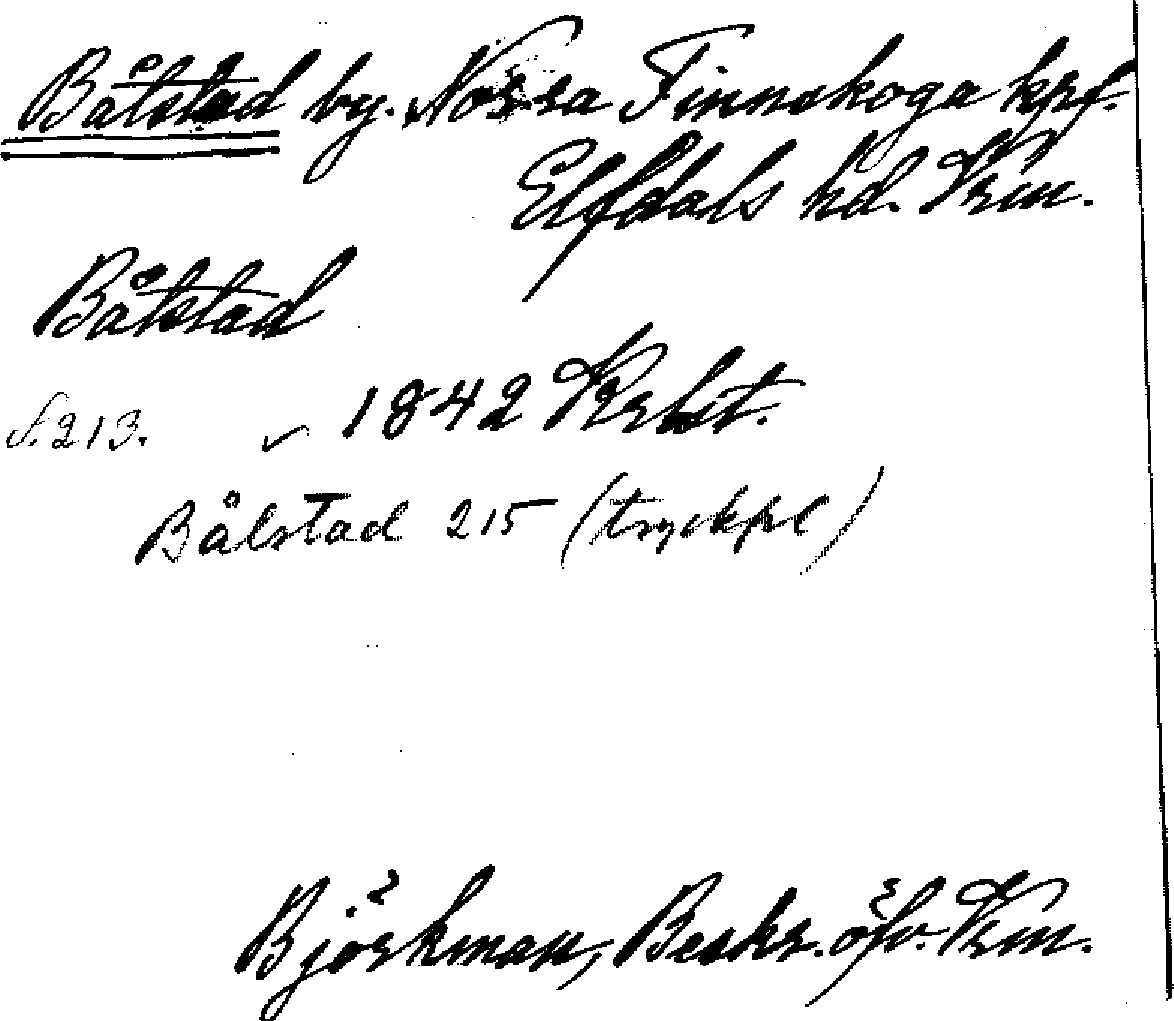 Bålstad by. Norra Finnskoga kpf.
Elfdals hd. Vrm.
Båtstad
S. 213. ✓ 1842 Krbst.
Bålstad 215 (tryckfel)
Björkman, Beskr. öfv. Vrm.